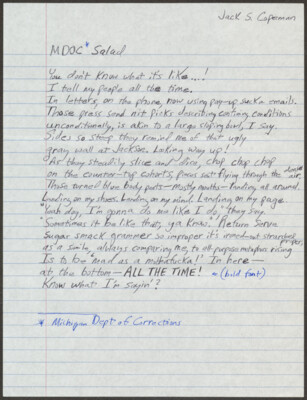 Jack S. Coperman
MDOC * Salad
You don't know what it's like...!
I tell my people all the time.
In letters, on the phone, now using pay-up sucka emails.
Those grass send not picks describing eating conditions
unconditionally, is akin to a large sliding bowl, I say.
Sides so steep they remind me of that ugly
gray wall at Jackson. Looking way up!
As they steadily slice and dice, chop chop chop
on the counter-top cohorts, pieces just flying through the
air.
Those turned blue body parts—mostly mouths—flinding all around.
Landing on my shoes. Landing on my mind. Landing on my page
"Yeah day, I'm gonna do me like I do," they say.
"Sometimes it be like that, ya know." Return Serve
Sugar smack grammer so improper it's
proper,
as a smile, always comparing me, to all-purpose metaphors rising
Is to be "mad as a muthafucka!" In here—
at the bottom—ALL THE TIME! ~ (bold font)
Know what I'm sayin'?
* Michigan Dept of Corrections